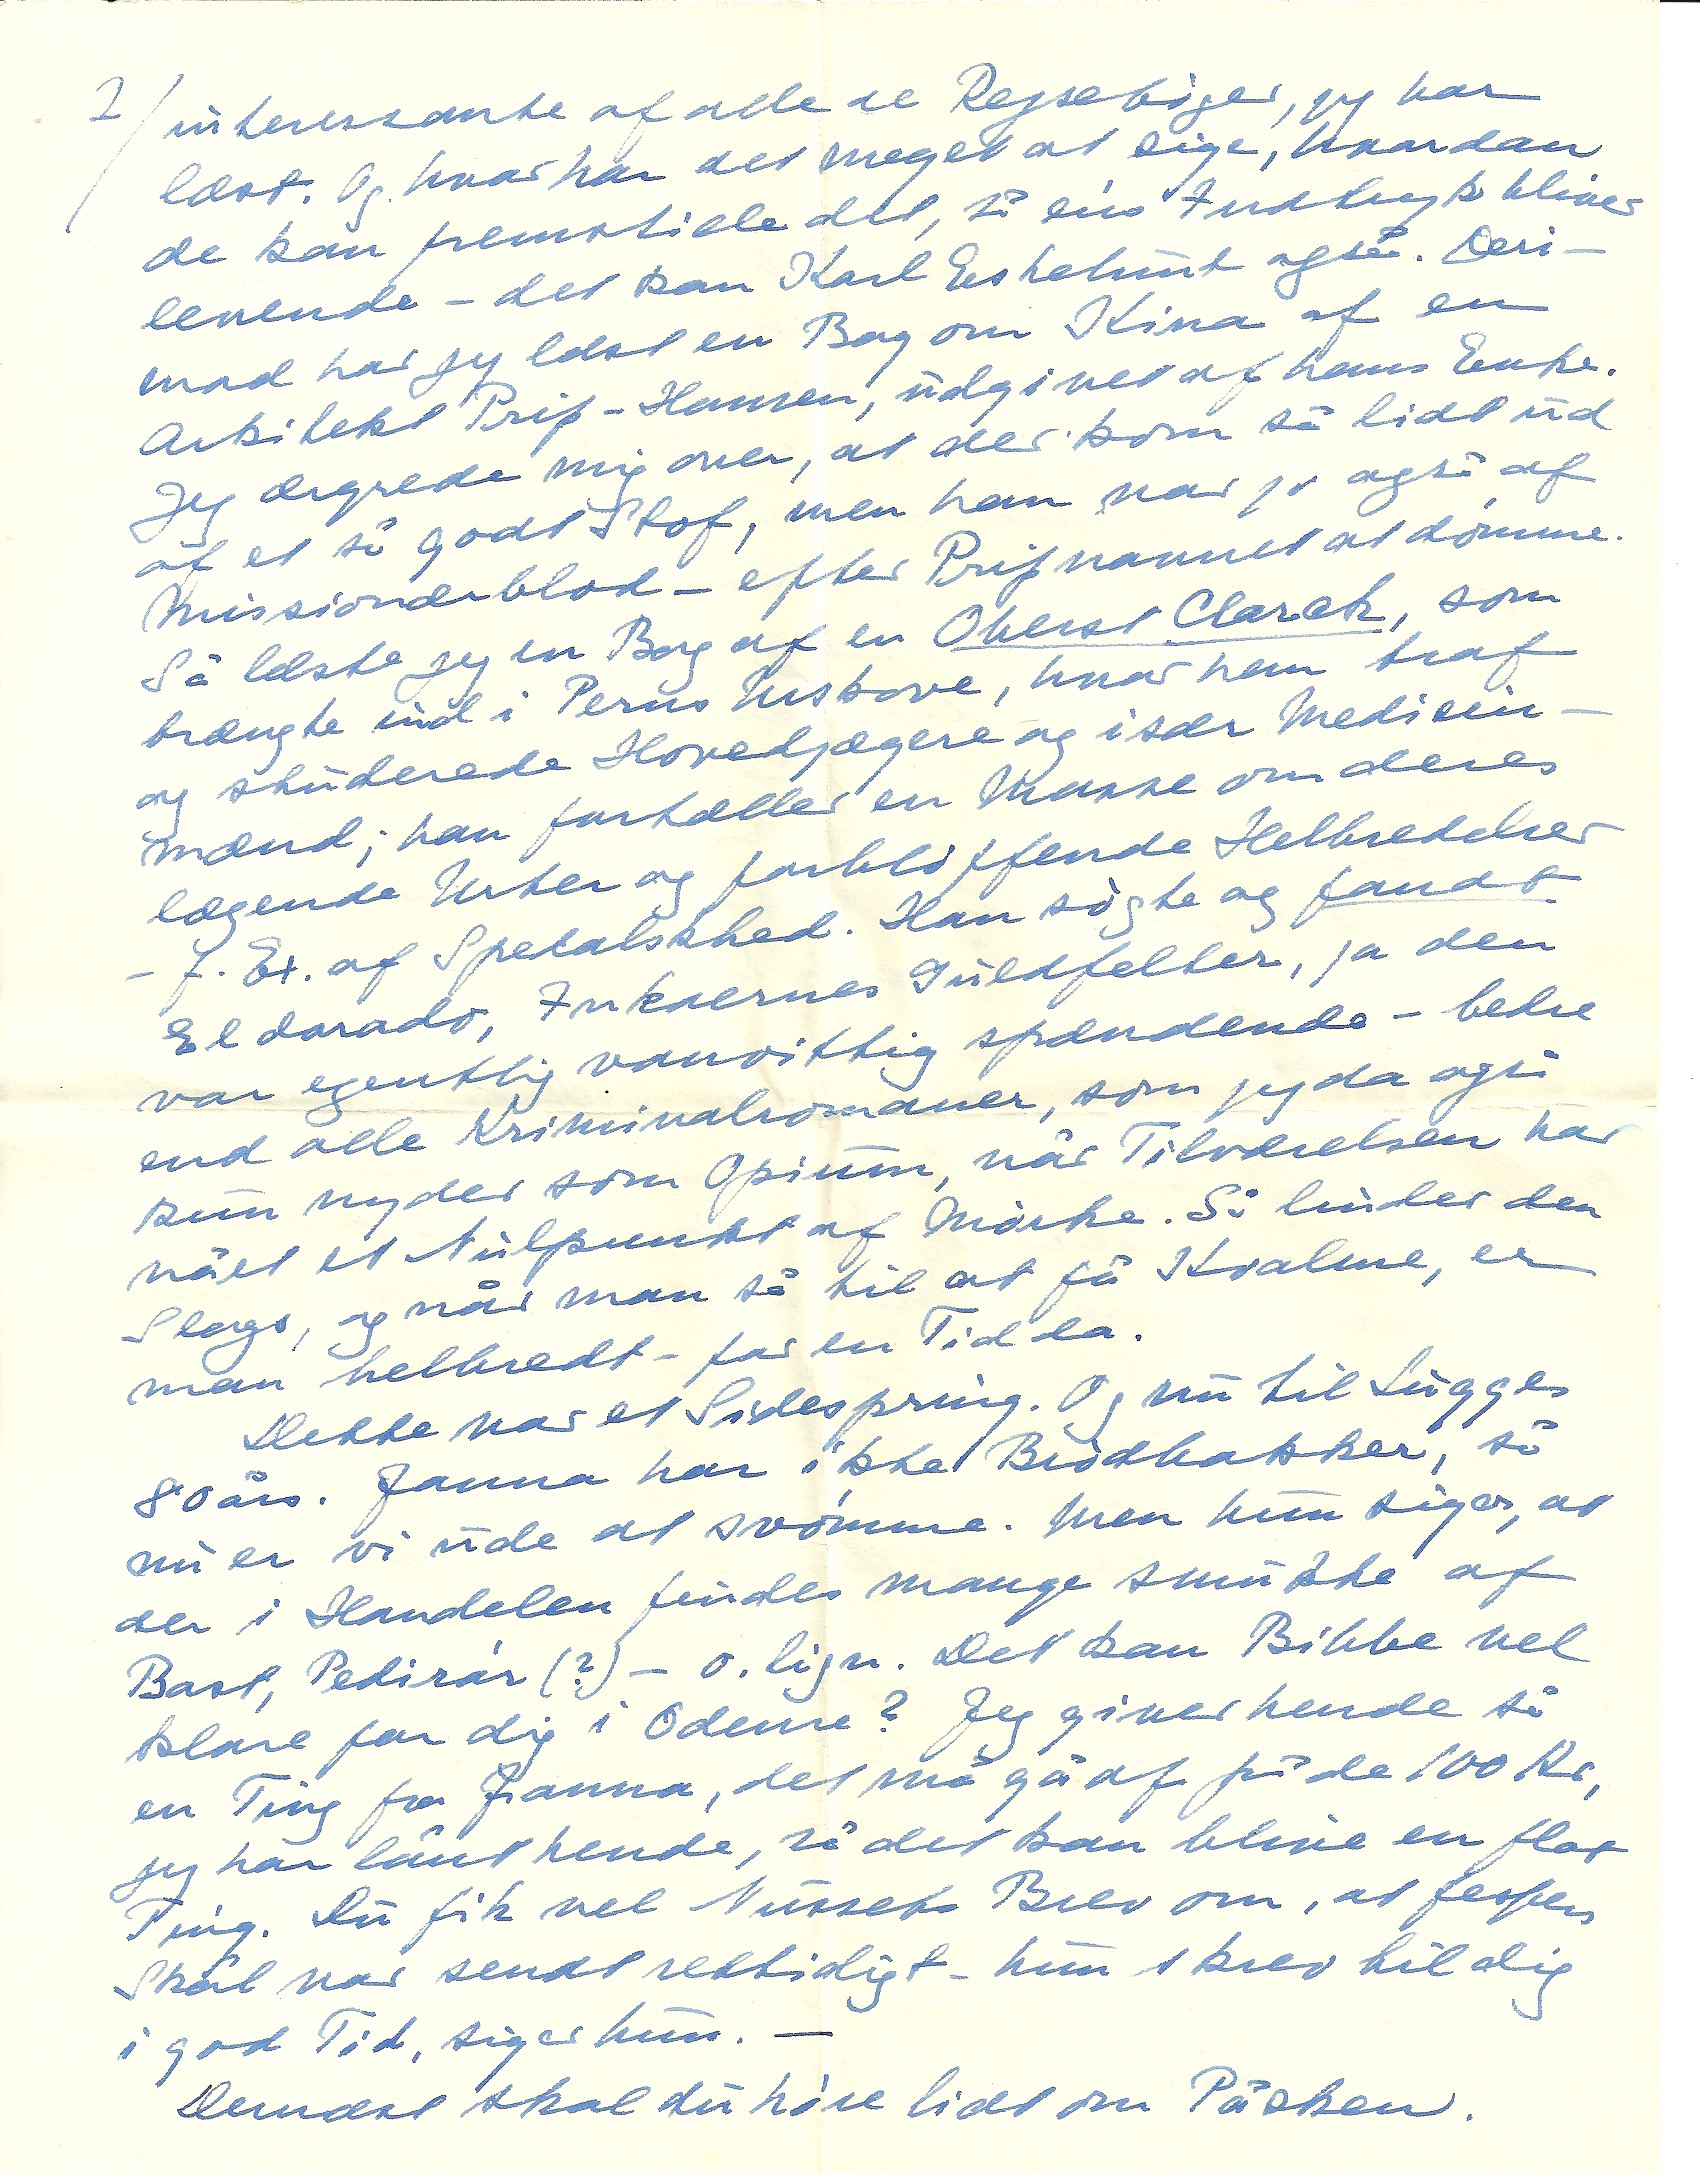 2/ interessante af alle de Rejsebøger, jeg har
læst. Og hvor har det meget at sige, hvordan
de kan fremstille det, så éns Indtryk bliver
levende – det kan Karl Eskelund også. Deri–
mod har jeg læst en Bog om Kina af en
Arkitekt Prip-Hansen, udgivet af hans Enke.
Jeg ærgrede mig over, at der kom så lidt ud
af et så godt Stof, men han var jo også af
Missionærblod – efter Pripnavnet at dømme.
Så læste jeg en Bog af en Oberst Clarck, som
trængte ind i Perus Urskove, hvor han traf
og studerede Hovedjægere og især Medicin–
mænd; han fortæller en Masse om deres
lægende Urter og forbløffende Helbredelser
– f. Ex. af Spedalskhed. Han søgte og fandt
Eldorado, Inkaernes Guldfelter, ja den
var egentlig vanvittig spændende – bedre
end alle Kriminalromaner, som jeg da også
kun nyder som Opium, når Tilværelsen har
nået et Nulpunkt af Mørke. Så linder den
Slags, og når man så til at få Kvalme, er
man helbredt – for en Tid da.
Dette var et Sidespring. Og nu til Lugges
80 års. Janna har ikke Brødbakker, så
nu er vi ude at svømme. Men hun siger, at
der i Handelen findes mange smukke af
Bast, Pedirør (?) – o. lign. Det kan Bibbe vel
klare for dig i Odense? Jeg giver hende så
en Ting fra Janna, det må gå af på de 100 Kr,
jeg har lånt hende, så det kan blive en flot
Ting. Du fik vel Nussets Brev om, at Jespers
Skål var sendt rettidigt – hun skrev til dig
i god Tid, siger hun. –
Dernæst skal du høre lidt om Påsken.